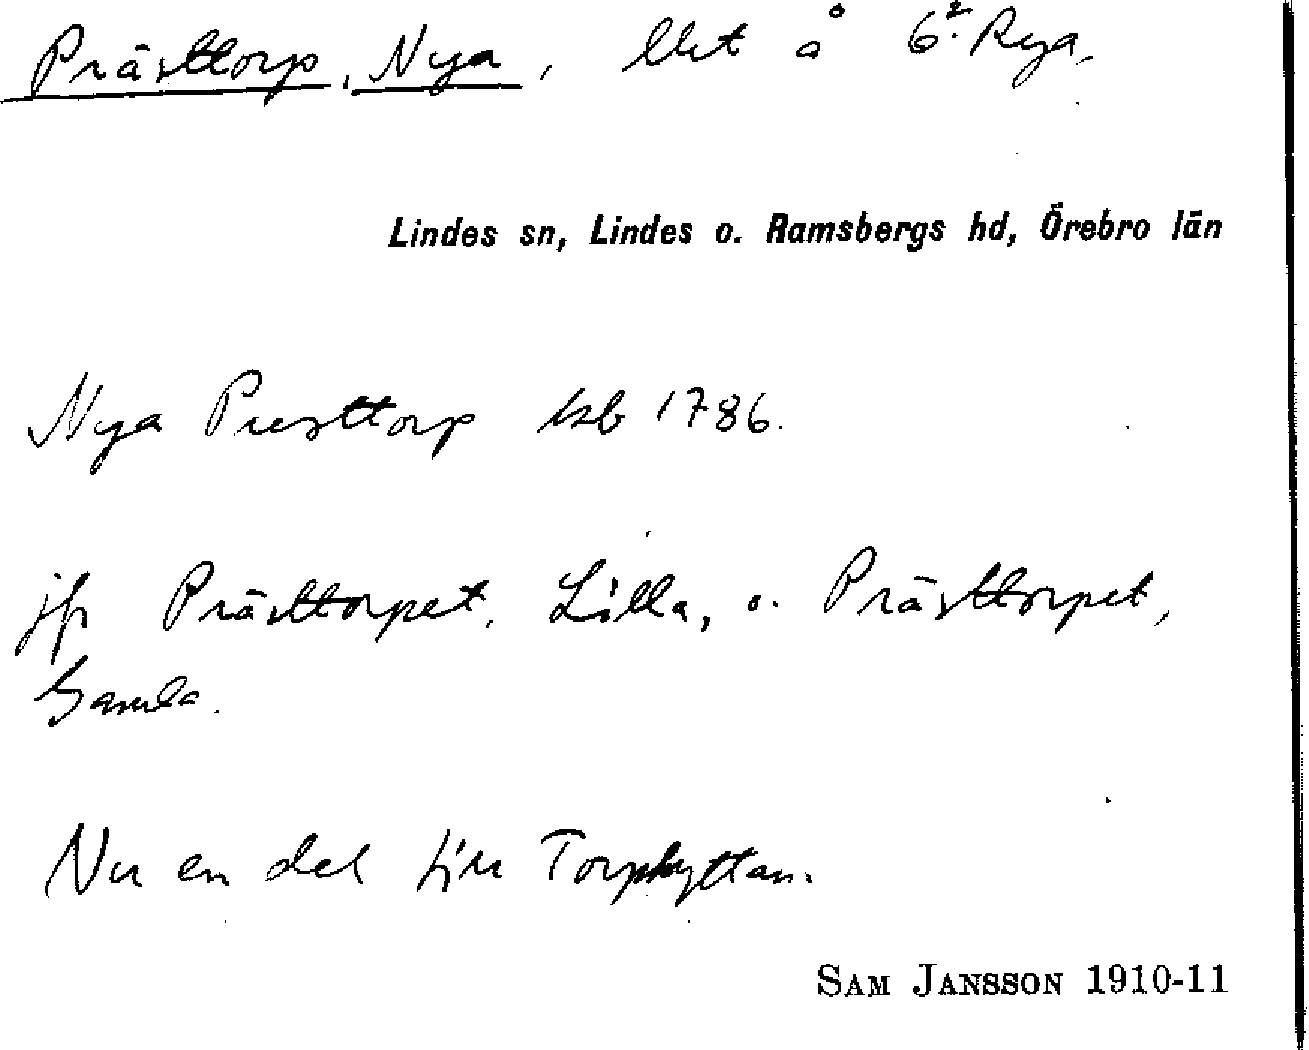 Prästtorp, Nya, lht å 6:2 Rya.
Lindes sn, Lindes o. Ramsbergs hd, Örebro län
Nya Presttorp ksb 1786.
jfr Prästtorpet, Lilla, o. Prästtorpet,
Gamla.
Nu en del till Torphyttan.
SAM JANSSON 1910-11